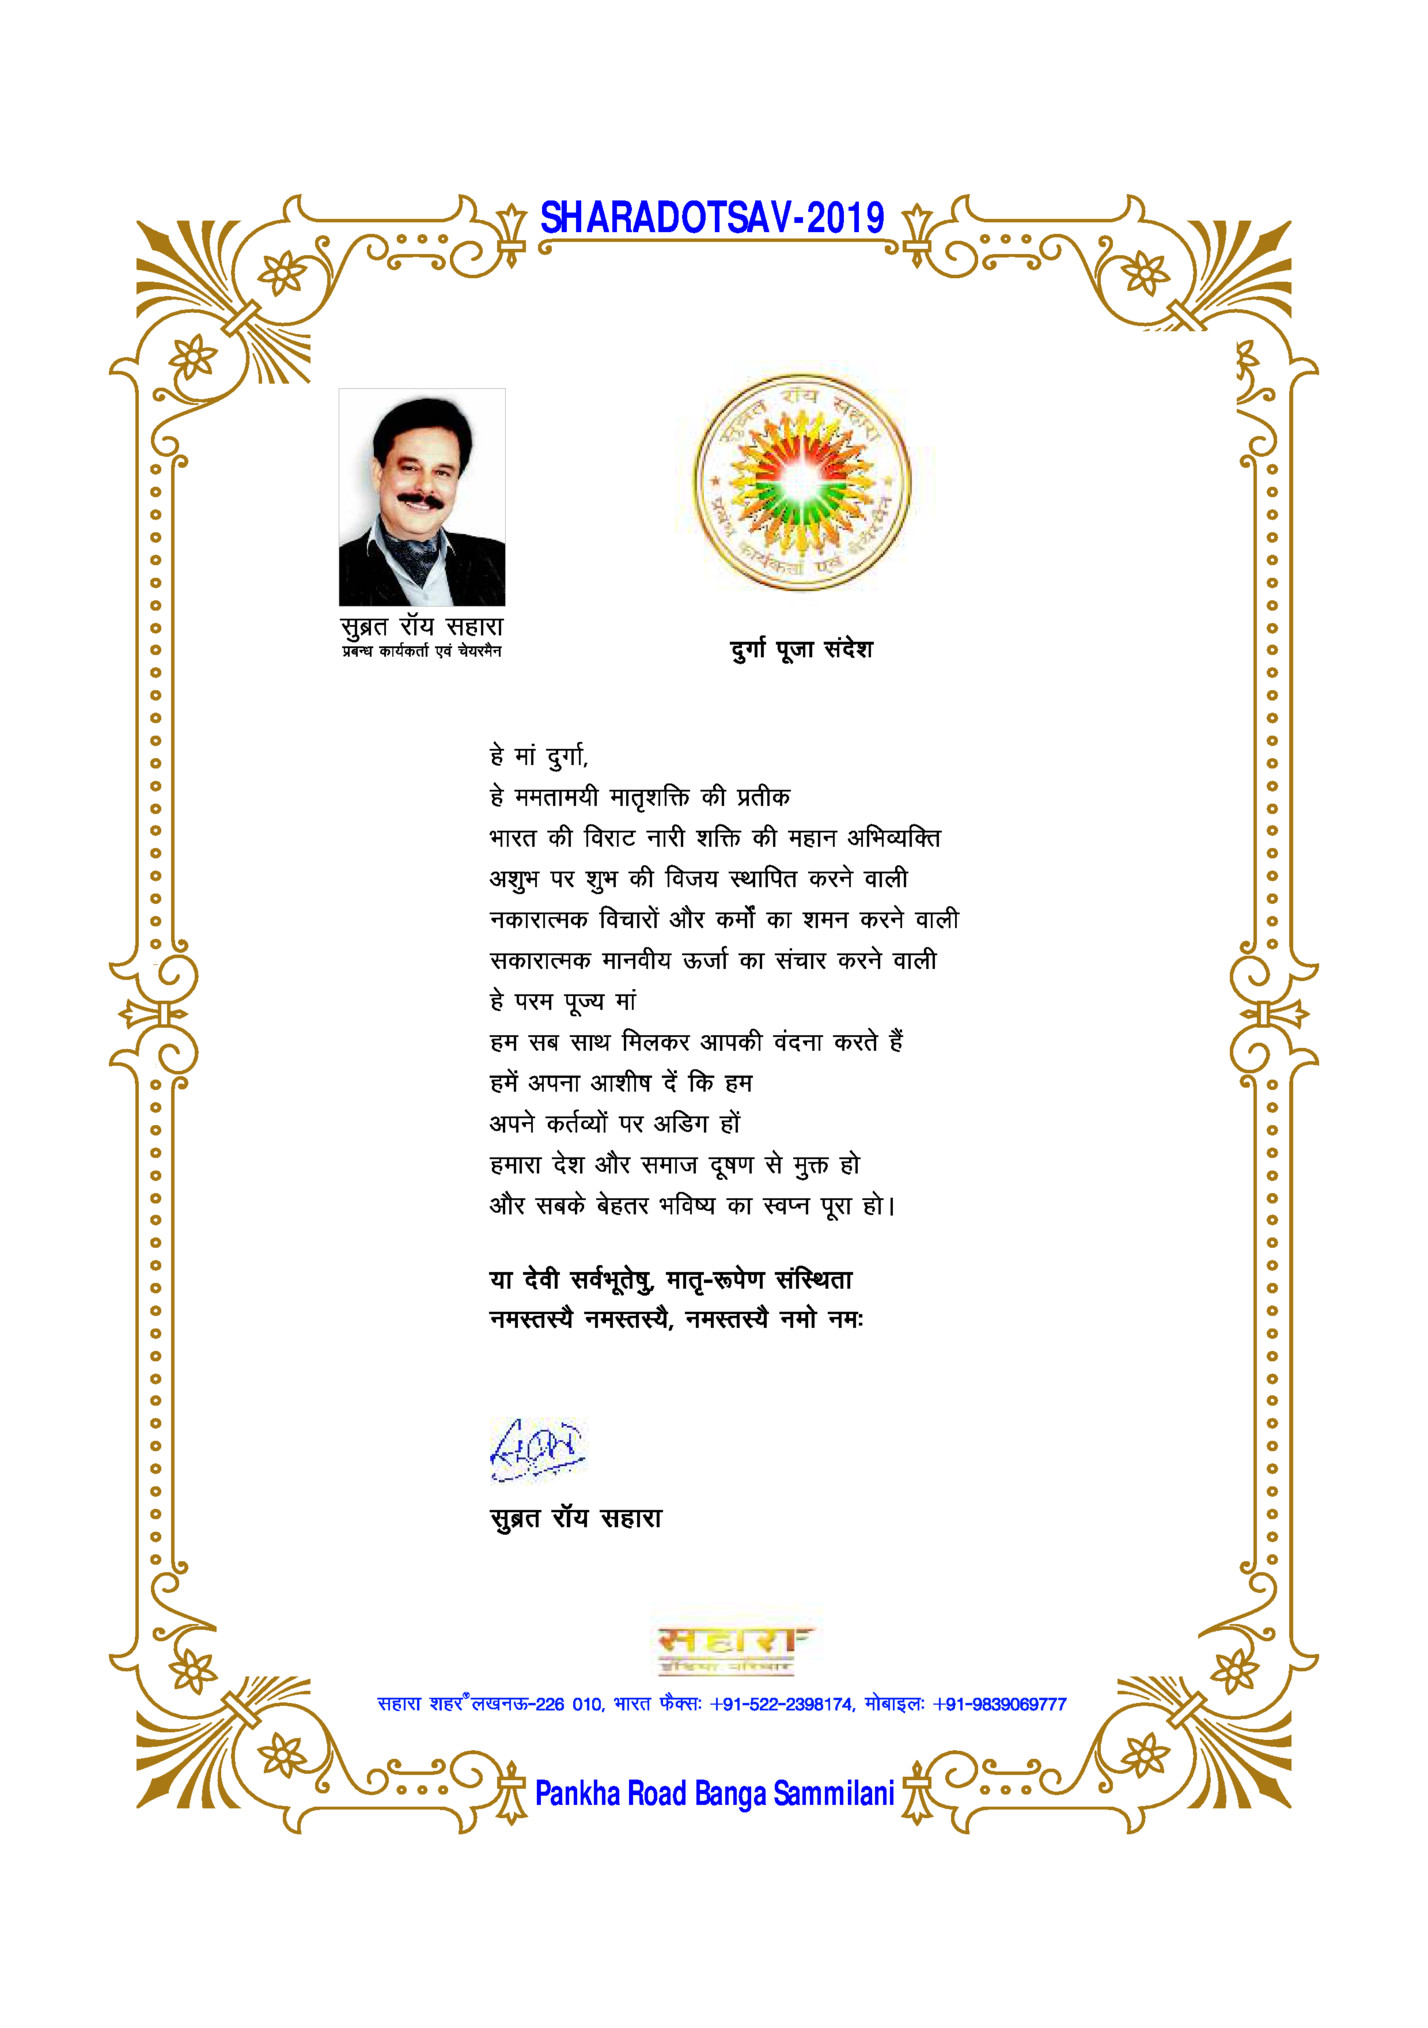 SHARADOTSAV-2019
सुब्रत रॉय सहारा
प्रबंध कार्यकर्ता एवं चेयरमैन
सुब्रत रॉय सहारा
प्रबन्ध कार्यकर्ता एवं चेयरमैन
दुर्गा पूजा संदेश
हे मां दुर्गा,
हे ममतामयी मातृशक्ति की प्रतीक
भारत की विराट नारी शक्ति की महान अभिव्यक्ति
अशुभ पर शुभ की विजय स्थापित करने वाली
नकारात्मक विचारों और कर्मों का शमन करने वाली
सकारात्मक मानवीय ऊर्जा का संचार करने वाली
हे परम पूज्य मां
हम सब साथ मिलकर आपकी वंदना करते हैं
हमें अपना आशीष दें कि हम
अपने कर्तव्यों पर अडिग हों
हमारा देश और समाज दूषण से मुक्त हो
और सबके बेहतर भविष्य का स्वप्न पूरा हो।
या देवी सर्वभूतेषु, मातृ-रूपेण संस्थिता
नमस्तस्यै नमस्तस्यै, नमस्तस्यै नमो नमः
सुब्रत रॉय सहारा
सहारा
इंडिया परिवार
सहारा शहर लखनऊ-226 010, भारत फैक्सः +91-522-2398174, मोबाइलः +91-9839069777
Pankha Road Banga Sammilani